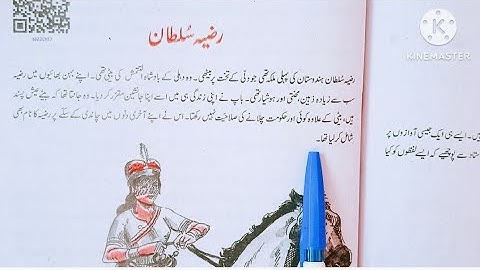 رضیہ سُلطان
رضیہ سُلطان ہندوستان کی پہلی ملکہ تھی جو دلّی کے تخت پر بیٹھی۔ وہ دہلی کے بادشاہ التمش کی بیٹی تھی۔ اپنے بہن بھائیوں میں رضیہ
سب سے زیادہ ذہین، محنتی اور ہوشیار تھی۔ باپ نے اپنی زندگی ہی میں اسے اپنا جانشین مقرر کر دیا۔ وہ جانتا تھا کہ بیٹے عیش پسند
ہیں، بیٹی کے علاوہ کوئی اور حکومت چلانے کی صلاحیت نہیں رکھتا۔ اس نے اپنے آخری دنوں میں چاندی کے سکّے پر رضیہ کا نام بھی
شامل کر لیا تھا۔
ہیں۔ ایسے ہی ایک جیسی آوازوں پر
ستاد سے پوچھیے کہ ایسے لفظوں کو کیا
KINEMASTER